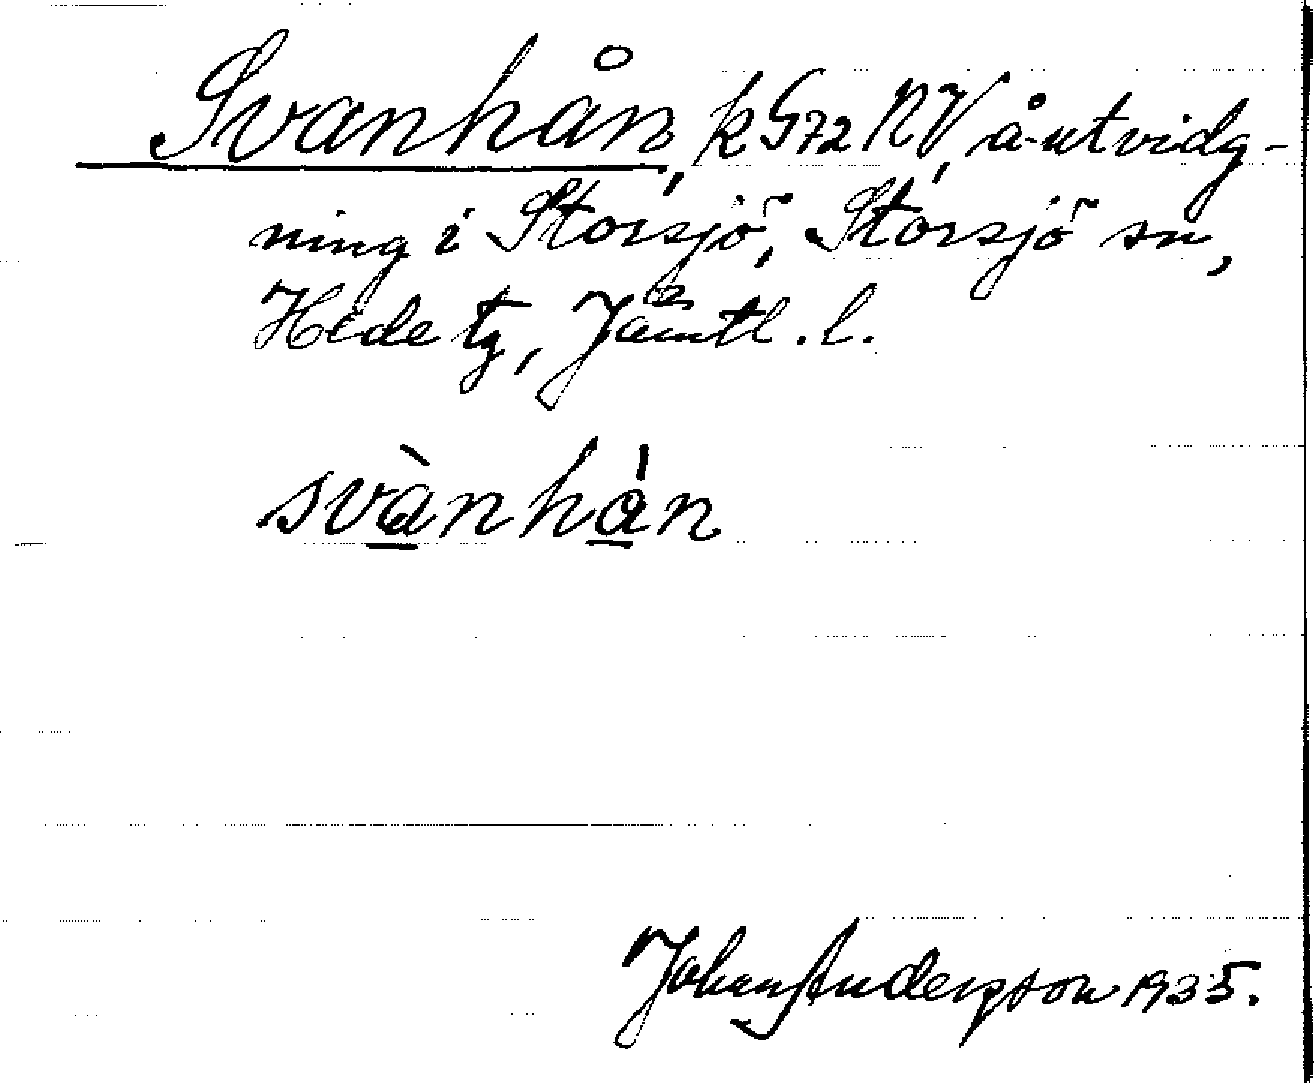 Svanhån, k G72 NV, å-utvidg-
ning i Storsjö, Storsjö sn,
Hede tg, Jämtl. l.
svànhån
Johan Andersson 1935.